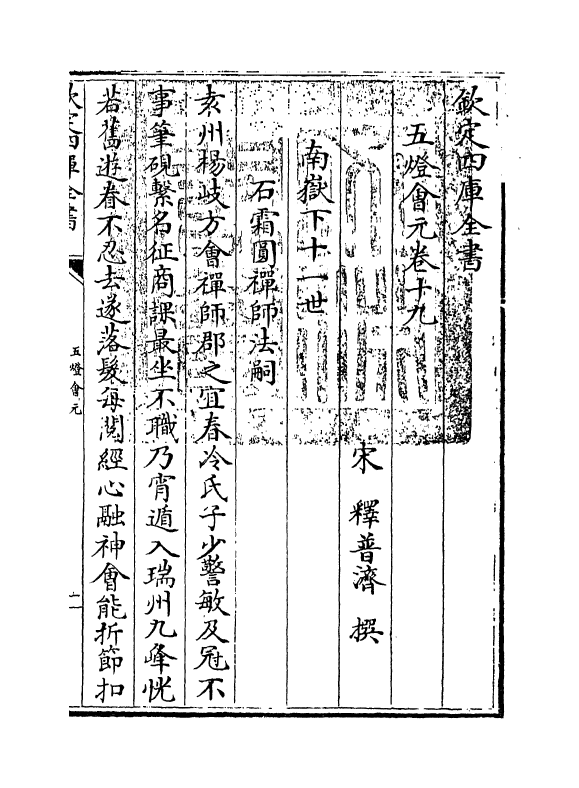 欽定四庫全書
五燈會元卷十九
宋 釋普濟 撰
南嶽下十一世
石霜圓禪師法嗣
袁州楊岐方會禪師郡之宜春冷氏子少警敏及冠不
事筆硯繫名征商課最坐不職乃宵遁入瑞州九峰恍
若舊遊眷不忍去遂落髮每閱經心融神會能折節扣
欽定四庫全書
五燈會元
一